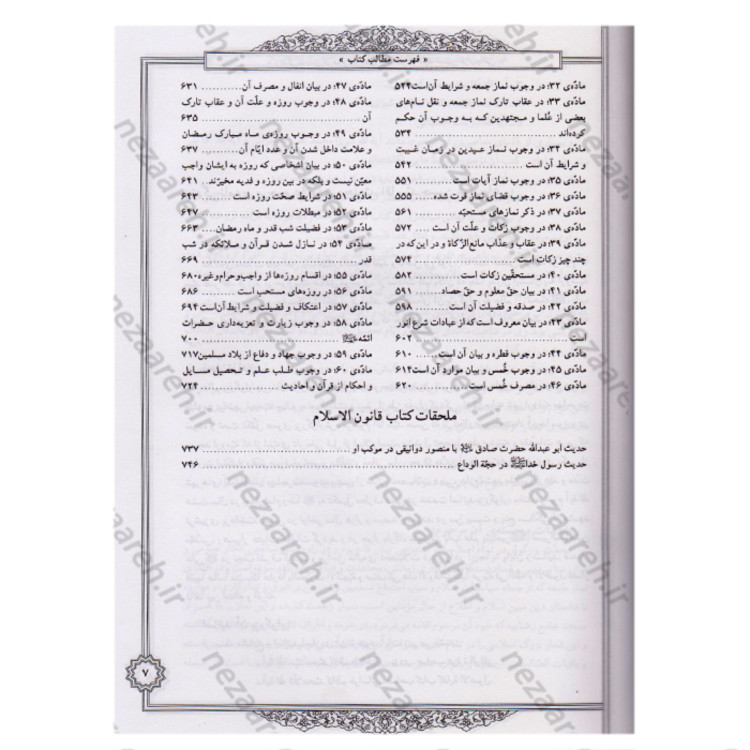 « فهرست مطالب کتاب »
مادّه‌ی ۳۲؛ در وجوب نماز جمعه و شرایط آن است ۵۲۴
مادّه‌ی ۳۳؛ در عقاب تارک نماز جمعه و نقل نام‌های
بعضی از عُلما و مجتهدین کـه بـه وجـوب آن حکـم
کرده‌اند ........ ۵۳۴
مادّه‌ی ۳۴؛ در وجوب نمـاز عیـدین در زمـان غیبـت
و شرایط آن است ........ ۵۴۲
مادّه‌ی ۳۵؛ در وجوب نماز آیات است ........ ۵۵۱
مادّه‌ی ۳۶؛ در وجوب قضای نماز فوت شده ........ ۵۵۵
مادّه‌ی ۳۷؛ در ذکر نمازهای مستحبّه ........ ۵۶۱
مادّه‌ی ۳۸؛ در وجوب زکات و علّت آن است ........ ۵۷۲
مادّه‌ی ۳۹؛ در عقاب و عذاب مانع الزّکاة و در این که در
چند چیز زکات است ........ ۵۷۴
مادّه‌ی ۴۰؛ در مستحقّین زکات است ........ ۵۸۲
مادّه‌ی ۴۱؛ در بیان حقّ معلوم و حقّ حصاد ........ ۵۹۱
مادّه‌ی ۴۲؛ در صدقه و فضیلت آن است ........ ۵۹۸
مادّه‌ی ۴۳؛ در بیان معروف است که از عبادات شرع انور
است ........ ۶۰۲
مادّه‌ی ۴۴؛ در وجوب فطره و بیان آن است ........ ۶۱۰
مادّه‌ی ۴۵؛ در وجوب خُمس و بیان موارد آن است ۶۱۴
مادّه‌ی ۴۶؛ در مصرف خُمس است ........ ۶۲۰
مادّه‌ی ۴۷؛ در بیان انفال و مصرف آن ........ ۶۳۱
مادّه‌ی ۴۸؛ در وجوب روزه و علّت آن و عقاب تارک
آن ........ ۶۳۵
مادّه‌ی ۴۹؛ در وجـوب روزه‌ی مـاه مبـارک رمضـان
و علامت داخل شدن آن و عدد ایّام آن ........ ۶۳۷
مادّه‌ی ۵۰؛ در بیان اشخاصی که روزه به ایشان واجب
معیّن نیست و بلکه در بین روزه و فدیه مخیّرند. ۶۴۱
مادّه‌ی ۵۱؛ در شرایط صحّت روزه است ........ ۶۴۳
مادّه‌ی ۵۲؛ در مبطلات روزه است ........ ۶۴۷
مادّه‌ی ۵۳؛ در فضیلت شب قدر و ماه رمضان ........ ۶۶۳
مادّه‌ی ۵۴؛ در نـازل شـدن قـرآن و مـلائکه در شب
قدر ........ ۶۶۹
مادّه‌ی ۵۵؛ در اقسام روزه‌ها از واجب‌وحرام‌وغیره ۶۸۰
مادّه‌ی ۵۶؛ در روزه‌های مستحب است ........ ۶۸۶
مادّه‌ی ۵۷؛ در اعتکاف و فضیلت و شرایط آن است ۶۹۴
مادّه‌ی ۵۸؛ در وجوب زیارت و تعزیه‌داری حضرات
ائمّه ........ ۷۰۰
مادّه‌ی ۵۹؛ در وجوب جهاد و دفاع از بلاد مسلمین ۷۱۷
مادّه‌ی ۶۰؛ در وجوب طلب علـم و تحصیل مسایل
و احکام از قرآن و احادیث ........ ۷۲۴
ملحقات کتاب قانون الاسلام
حدیث ابو عبدالله حضرت صادق با منصور دوانیقی در موکب او ........ ۷۳۷
حدیث رسول خدا ﷺ در حجّة الوداع ........ ۷۴۶
۷
nezaareh.ir